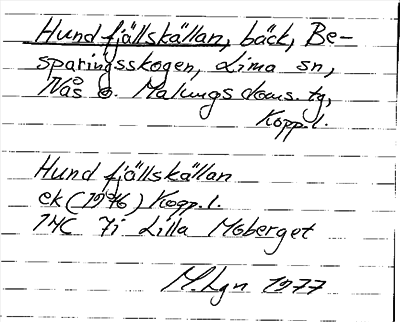 Hundfjällskällan, bäck, Be-
sparingsskogen, Lima sn,
Nås o. Malungs doms. tg,
Kopp. l.
Hundfjällskällan
ek (1976) Kopp. l.
14C 7i Lilla Moberget
M. Lgn 1977